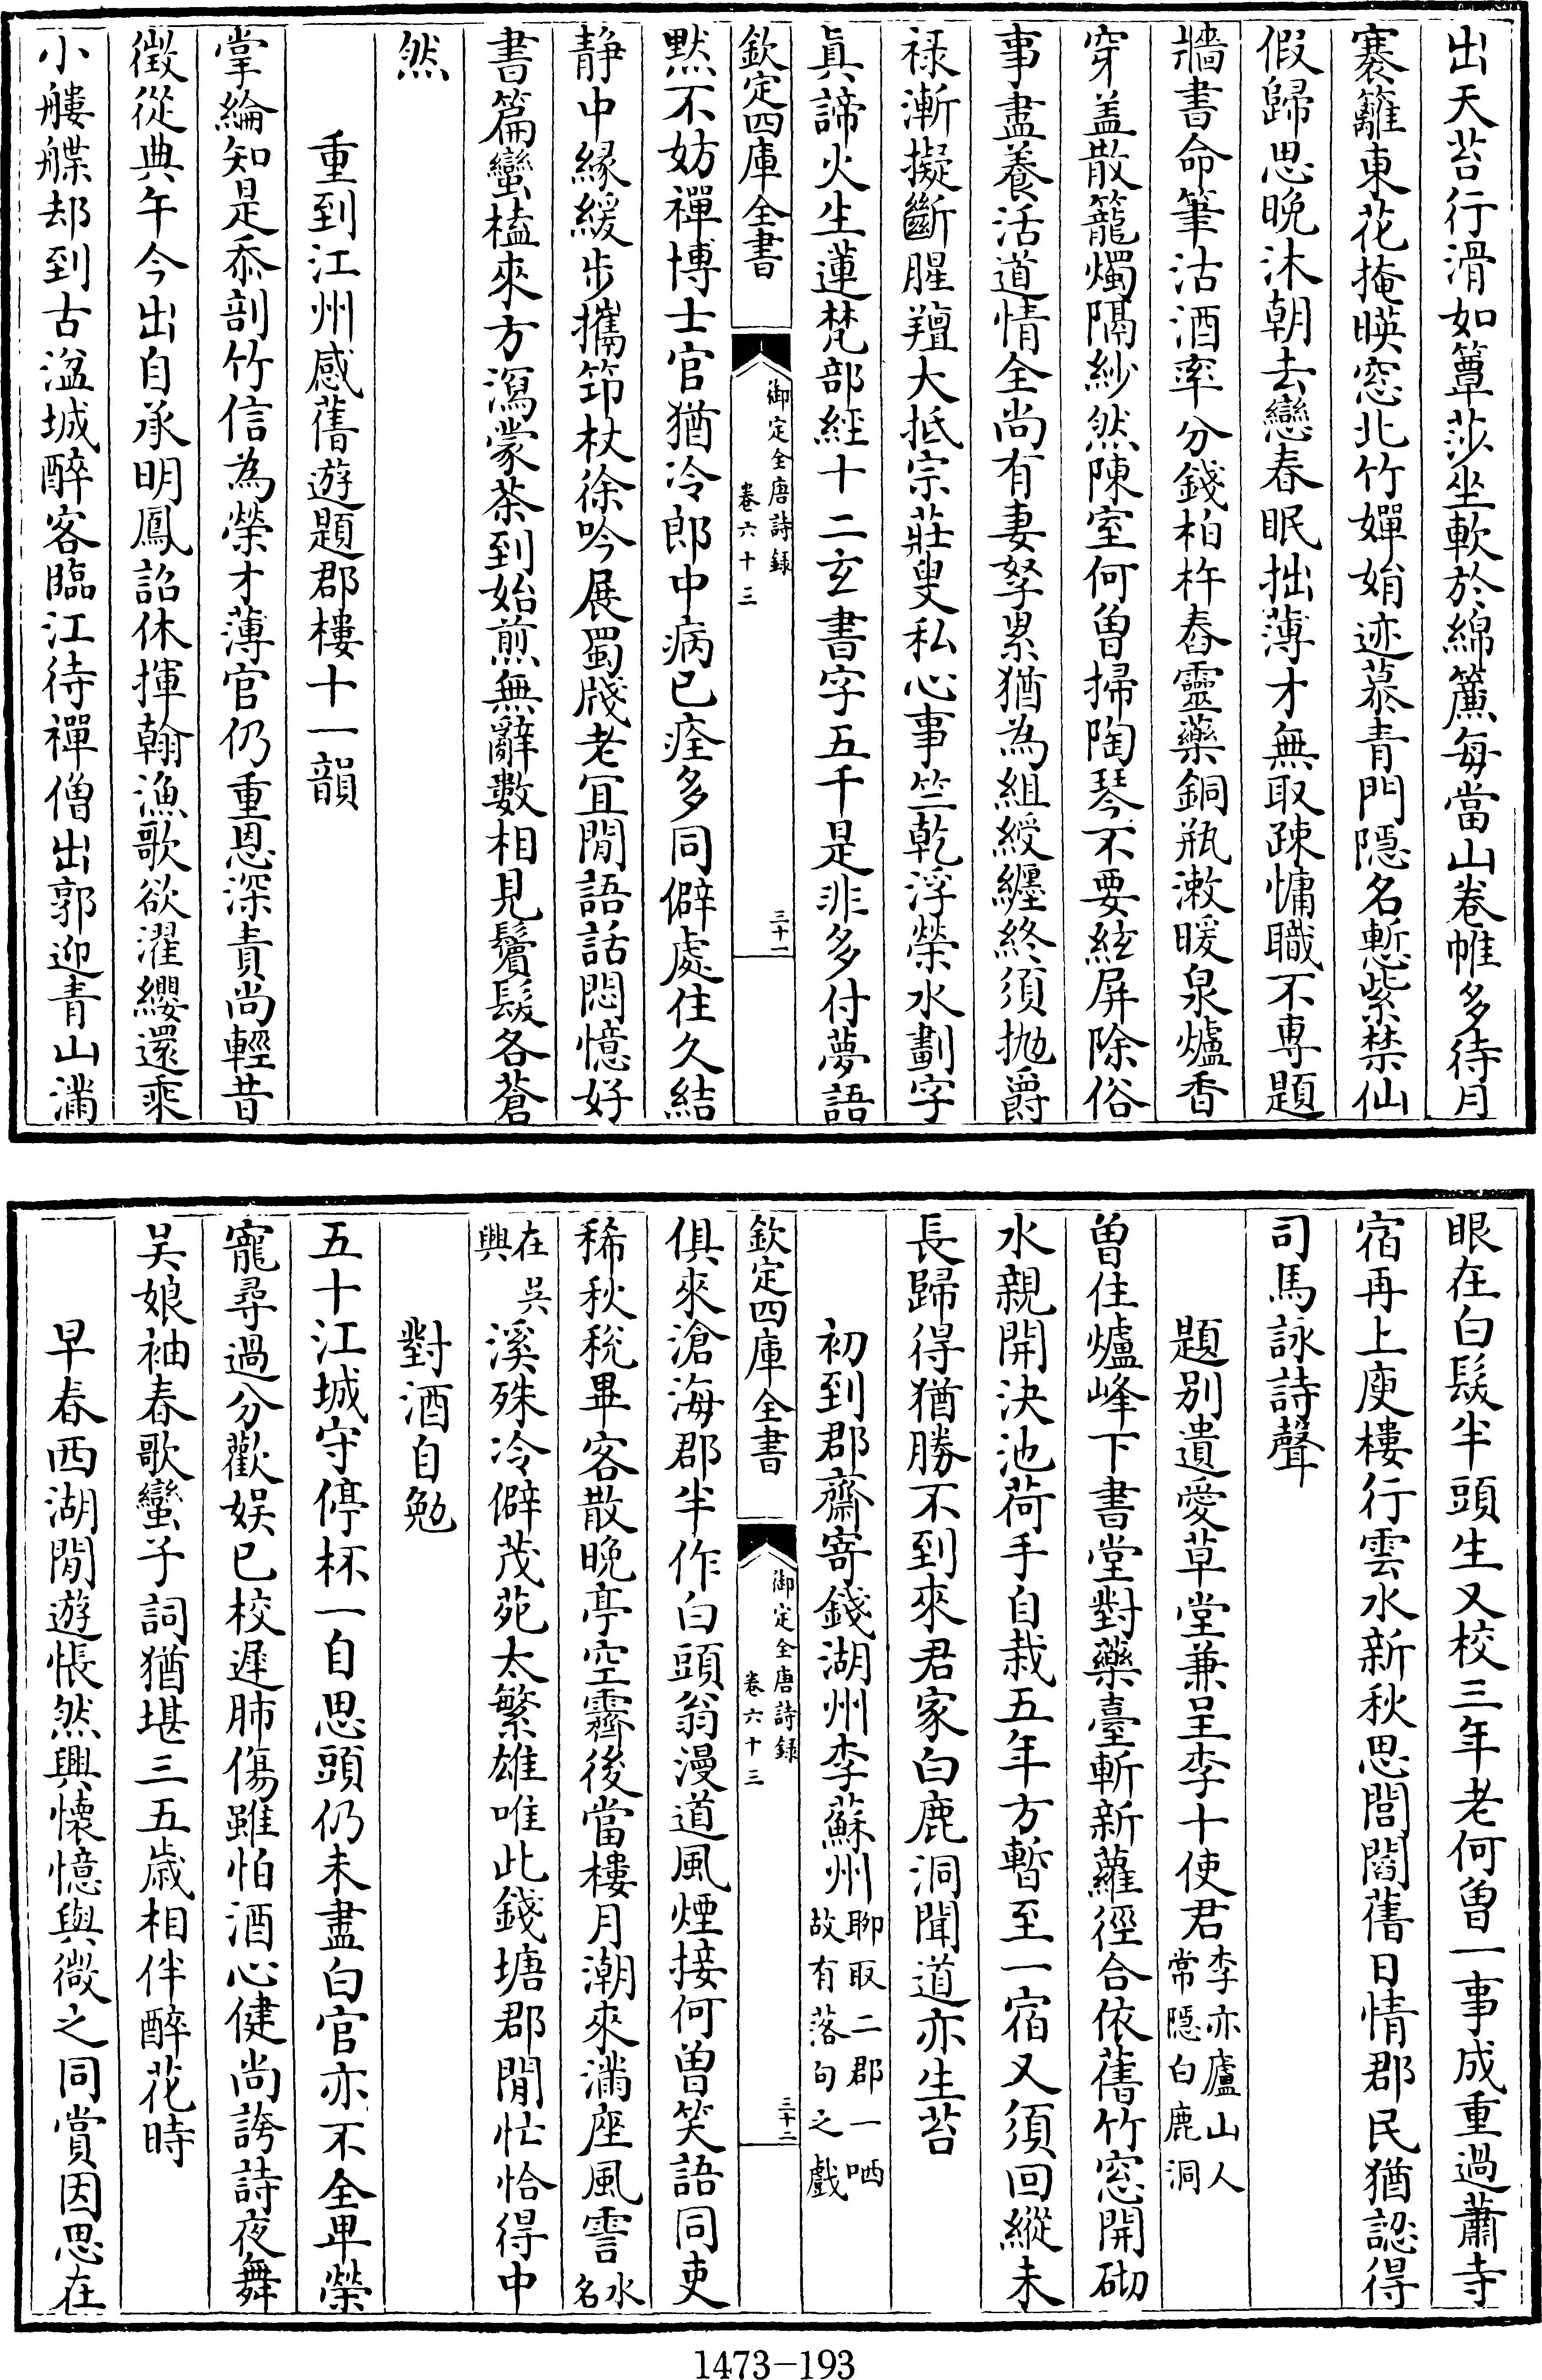 出天苔行滑如簟莎坐軟於綿簾每當山卷帷多待月
褰籬東花掩映窓北竹嬋娟迹慕青門隠名慙紫禁仙
假歸思晩沐朝去戀春眠拙薄才無取疎慵職不專題
牆書命筆沽酒率分錢柏杵舂靈藥銅瓶漱暖泉爐香
穿盖散籠燭隔紗然陳室何曽掃陶琴不要絃屏除俗
事盡養活道情全尚有妻孥累猶為組綬纒終須抛爵
禄漸擬斷腥羶大抵宗莊叟私心事竺乾浮榮水劃字
真諦火生蓮梵部經十二玄書字五千是非多付夢語
欽定四庫全書
御定全唐詩録
卷六十三
三十一
默不妨禪博士官猶冷郎中病已痊多同僻處住久結
静中縁緩步攜筇杖徐吟展蜀牋老冝閒語話悶憶好
書篇蠻榼來方瀉蒙茶到始煎無辭數相見鬢髮各蒼
然
重到江州感舊遊題郡樓十一韻
掌綸知是忝剖竹信為榮才薄官仍重恩深責尚輕昔
徵從典午今出自承明鳳詔休揮翰漁歌欲濯纓還乘
小艛艓却到古湓城醉客臨江待禪僧出郭迎青山滿
眼在白髮半頭生又校三年老何曽一事成重過蕭寺
宿再上庾樓行雲水新秋思閭閻舊日情郡民猶認得
司馬詠詩聲
題别遺愛草堂兼呈李十使君李亦廬山人
常隠白鹿洞
曽住爐峰下書堂對藥臺斬新蘿徑合依舊竹窓開砌
水親開決池荷手自栽五年方暫至一宿又須回縱未
長歸得猶勝不到來君家白鹿洞聞道亦生苔
初到郡齋寄錢湖州李蘇州聊取二郡一哂
故有落句之戲
欽定四庫全書
御定全唐詩録
卷六十三
三十二
俱來滄海郡半作白頭翁漫道風煙接何曽笑語同吏
稀秋稅畢客散晩亭空霽後當樓月潮來滿座風霅水
名
在吳
興溪殊冷僻茂苑太繁雄唯此錢塘郡閒忙恰得中
對酒自勉
五十江城守停杯一自思頭仍未盡白官亦不全卑榮
寵尋過分歡娱已校遲肺傷雖怕酒心健尚誇詩夜舞
吴娘袖春歌蠻子詞猶堪三五歳相伴醉花時
早春西湖閒遊悵然興懷憶與微之同賞因思在
1473-193